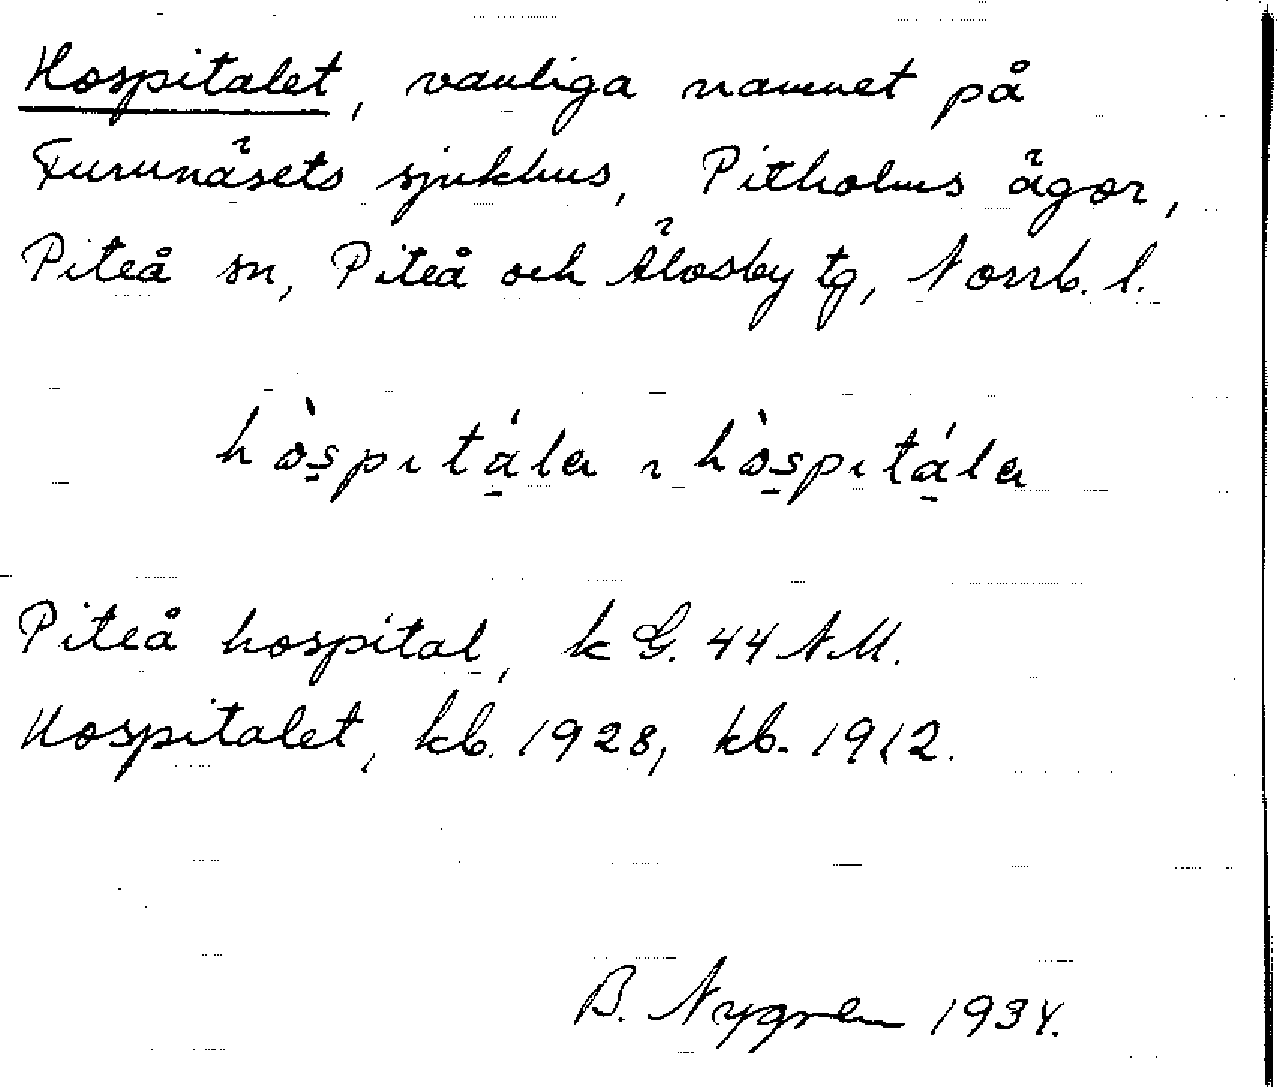 Hospitalet, vanliga namnet på
Furunäsets sjukhus, Pitholms ägor,
Piteå sn, Piteå och Älvsby tg, Norrb. l.
hòspɩtála ɿ hòspɩtála
Piteå hospital, k G. 44 NM.
Hospitalet, kb. 1928, kb. 1912.
B. Nygren 1934.